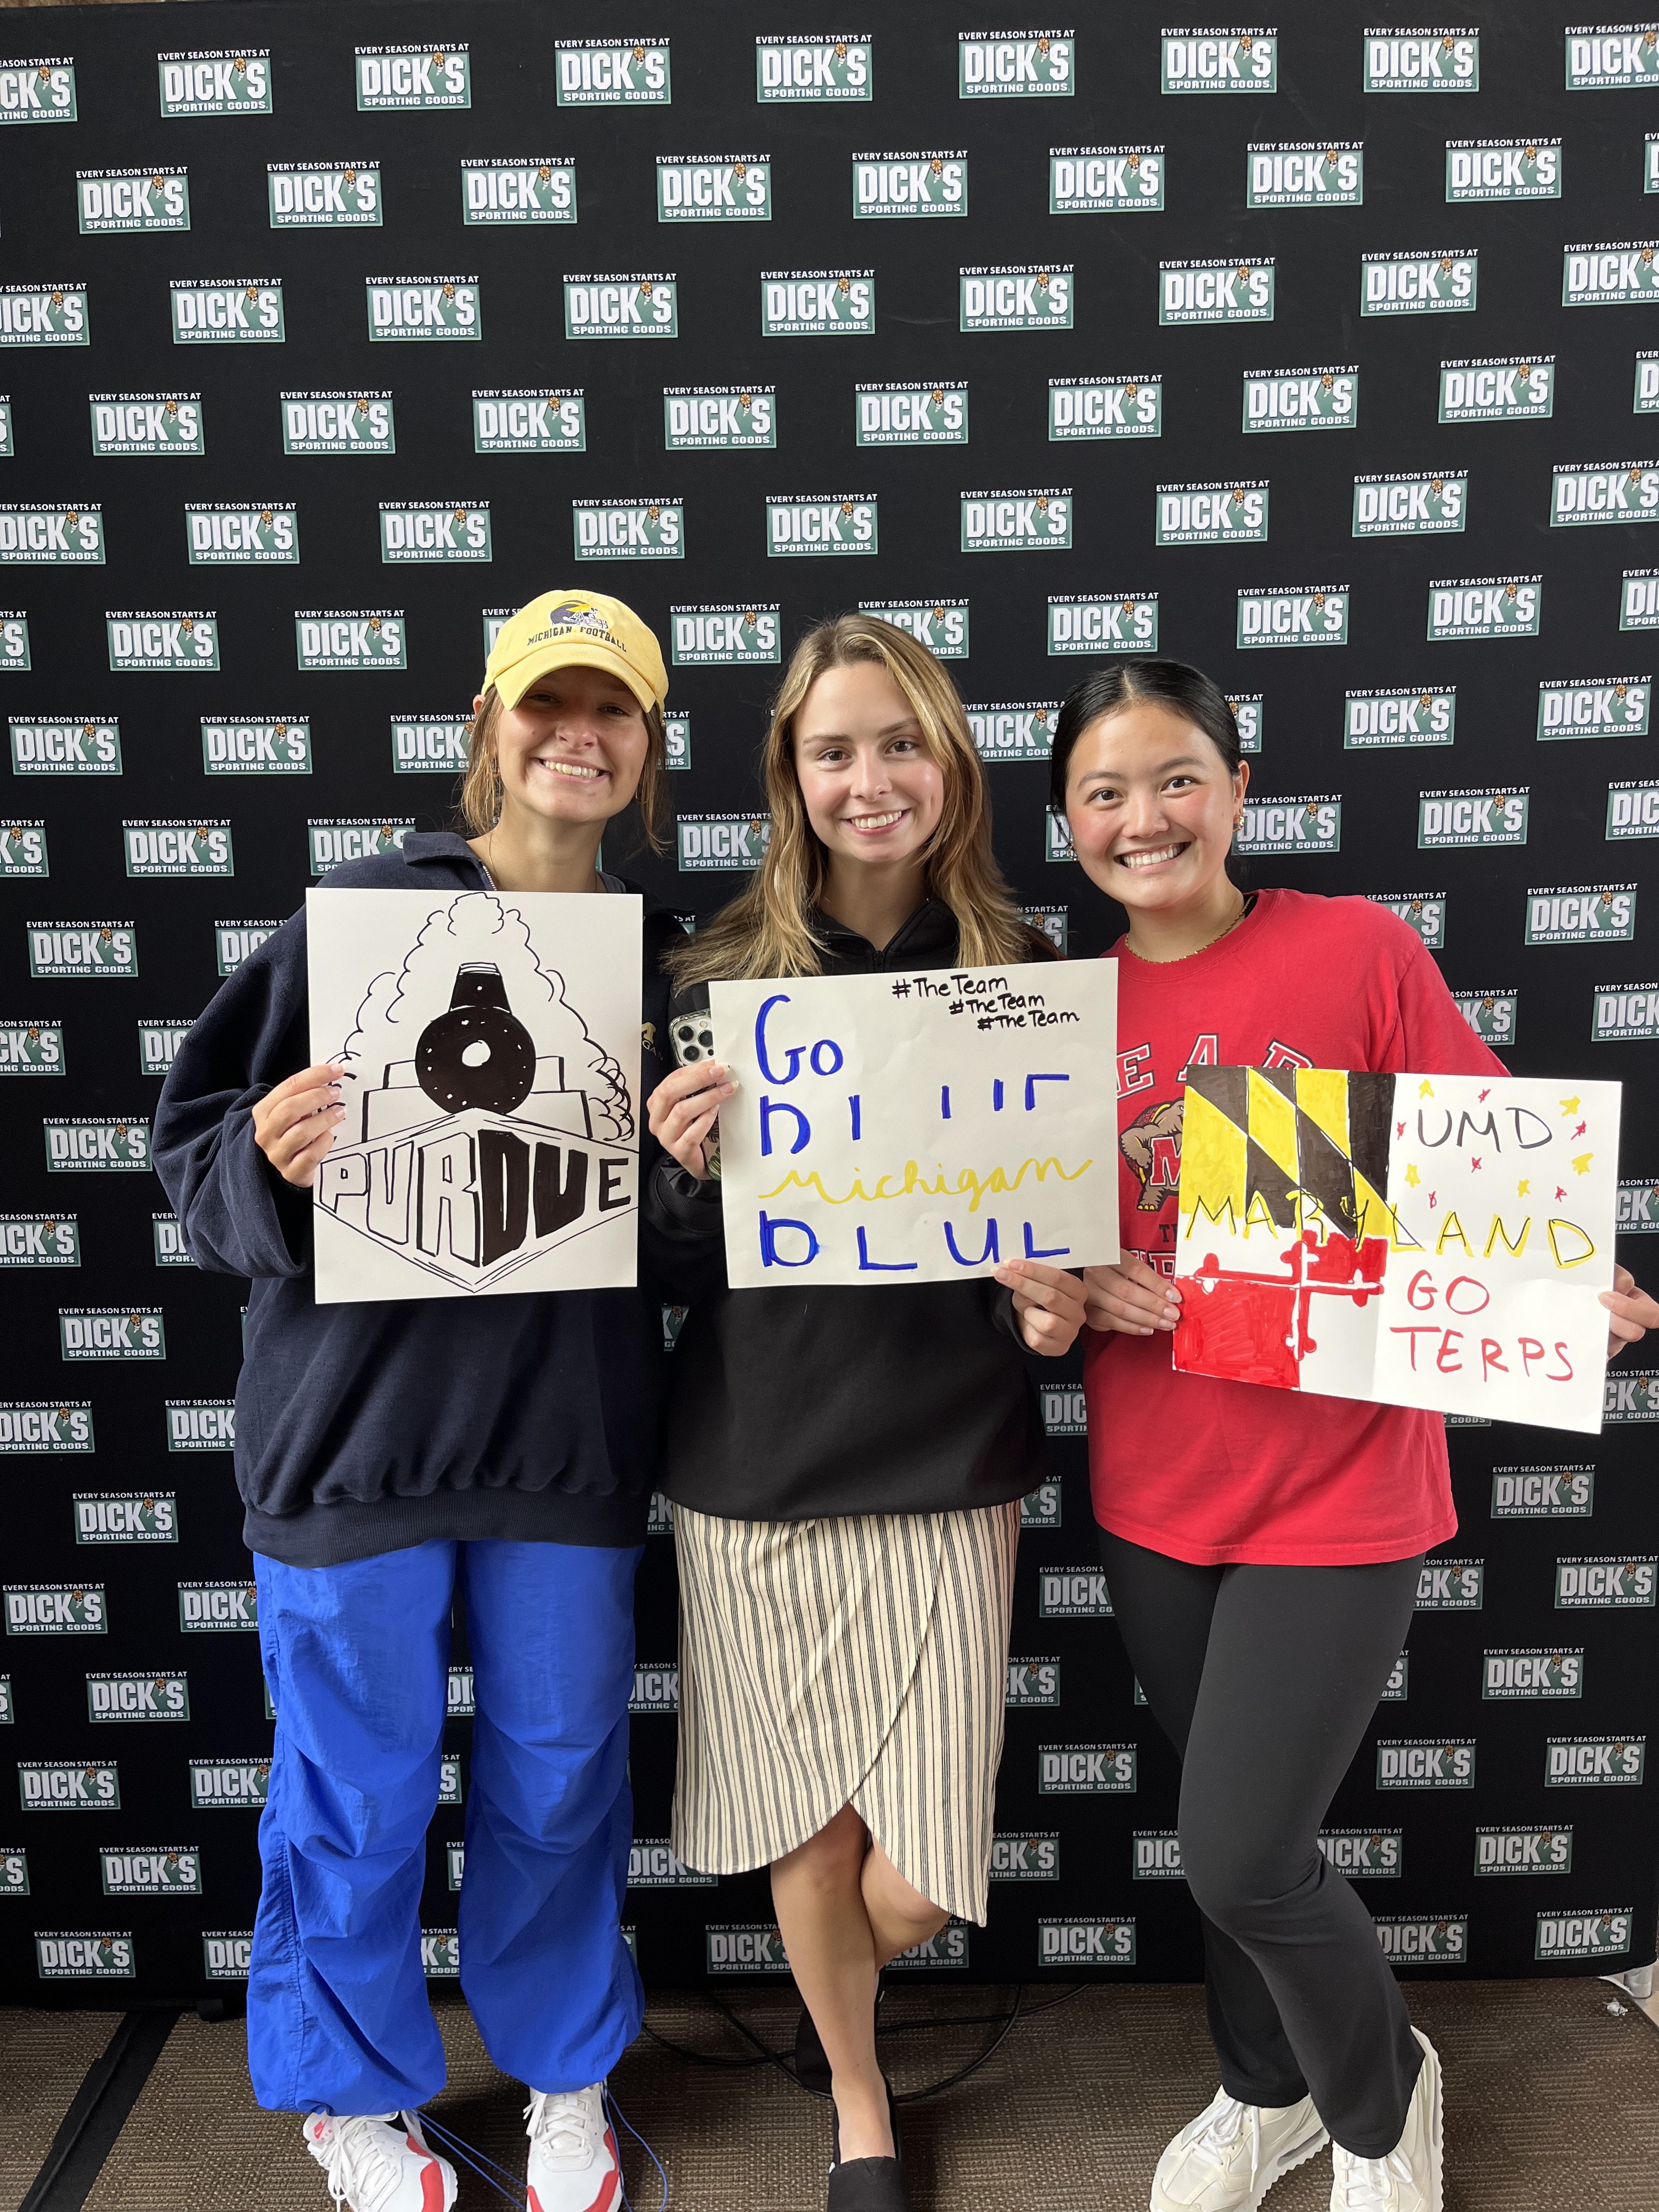 EVERY SEASON STARTS AT
DICK'S
SPORTING GOODS
MICHIGAN FOOTBALL
PURDUE
#TheTeam
#TheTeam
#TheTeam
Go
Michigan
UMD
MARYLAND
GO
TERPS